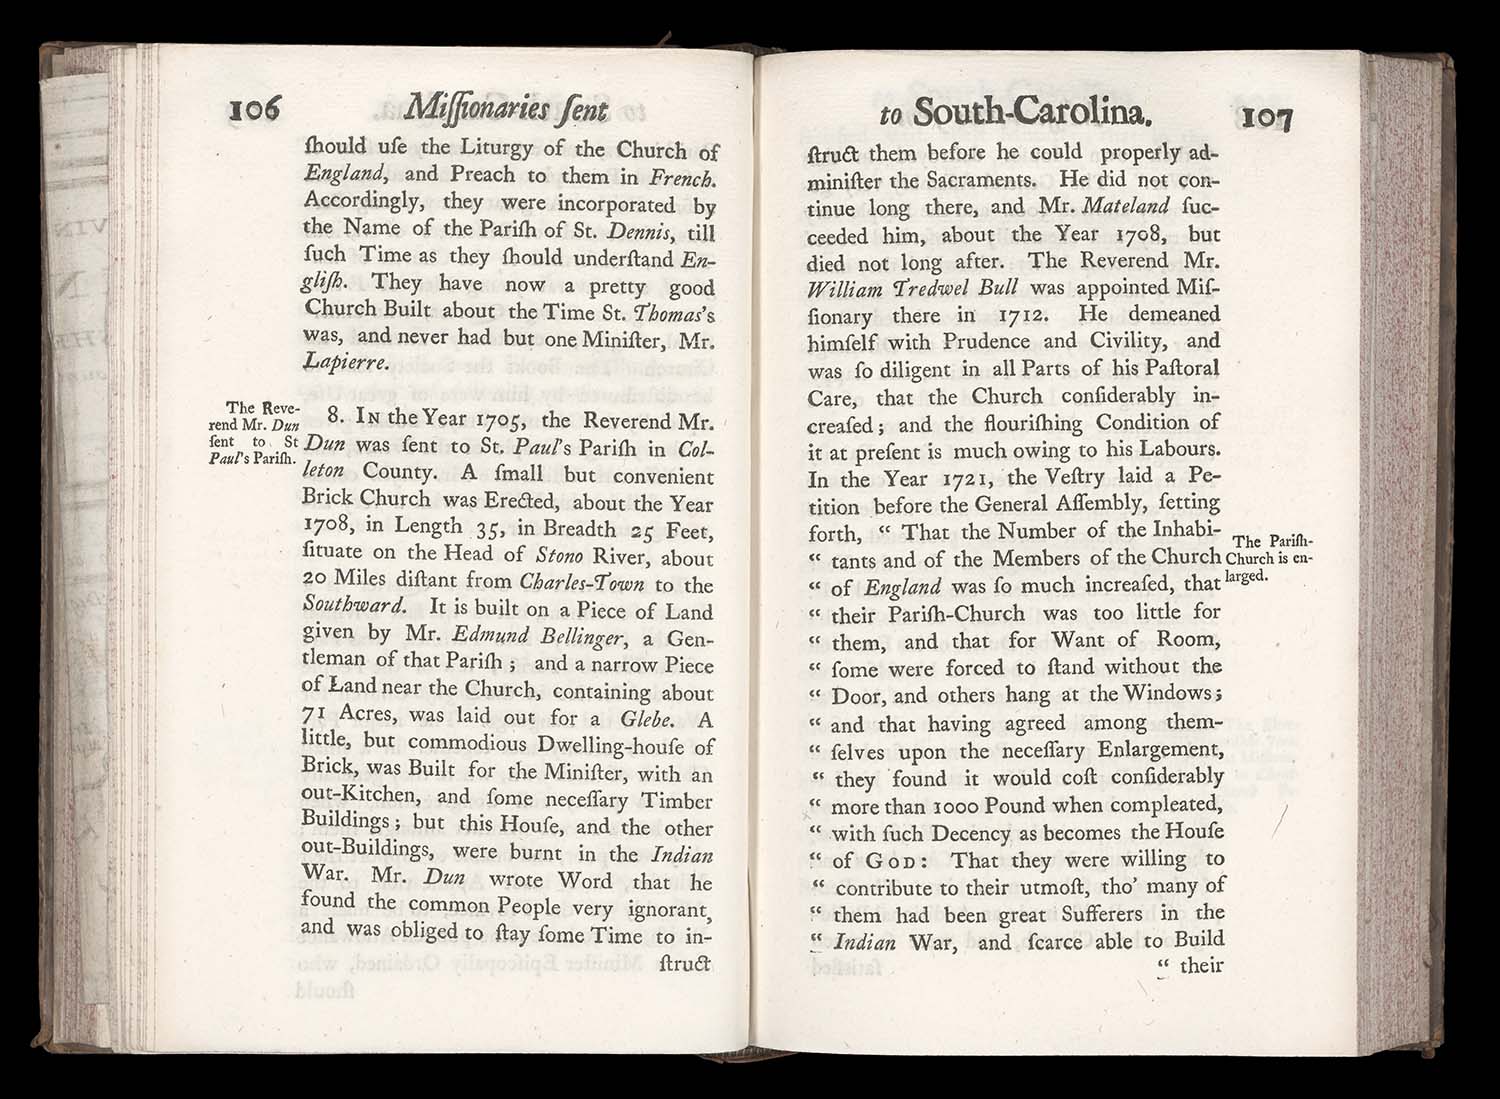 106 Miſſionaries ſent
ſhould uſe the Liturgy of the Church of
England, and Preach to them in French.
Accordingly, they were incorporated by
the Name of the Pariſh of St. Dennis, till
ſuch Time as they ſhould underſtand En-
gliſh. They have now a pretty good
Church Built about the Time St. Thomas's
was, and never had but one Miniſter, Mr.
Lapierre.
The Reve-
rend Mr. Dun
ſent to St
Paul's Pariſh.
8. IN the Year 1705, the Reverend Mr.
Dun was ſent to St. Paul's Pariſh in Col-
leton County. A ſmall but convenient
Brick Church was Erected, about the Year
1708, in Length 35, in Breadth 25 Feet,
ſituate on the Head of Stono River, about
20 Miles diſtant from Charles-Town to the
Southward. It is built on a Piece of Land
given by Mr. Edmund Bellinger, a Gen-
tleman of that Pariſh; and a narrow Piece
of Land near the Church, containing about
71 Acres, was laid out for a Glebe. A
little, but commodious Dwelling-houſe of
Brick, was Built for the Miniſter, with an
out-Kitchen, and ſome neceſſary Timber
Buildings; but this Houſe, and the other
out-Buildings, were burnt in the Indian
War. Mr. Dun wrote Word that he
found the common People very ignorant,
and was obliged to ſtay ſome Time to in-
ſtruct
to South-Carolina. 107
ſtruct them before he could properly ad-
miniſter the Sacraments. He did not con-
tinue long there, and Mr. Mateland ſuc-
ceeded him, about the Year 1708, but
died not long after. The Reverend Mr.
William Tredwel Bull was appointed Miſ-
ſionary there in 1712. He demeaned
himſelf with Prudence and Civility, and
was ſo diligent in all Parts of his Paſtoral
Care, that the Church conſiderably in-
creaſed; and the flouriſhing Condition of
it at preſent is much owing to his Labours.
In the Year 1721, the Veſtry laid a Pe-
tition before the General Aſſembly, ſetting
forth, “ That the Number of the Inhabi-
“ tants and of the Members of the Church
“ of England was ſo much increaſed, that
“ their Pariſh-Church was too little for
“ them, and that for Want of Room,
“ ſome were forced to ſtand without the
“ Door, and others hang at the Windows;
“ and that having agreed among them-
“ ſelves upon the neceſſary Enlargement,
“ they found it would coſt conſiderably
“ more than 1000 Pound when compleated,
“ with ſuch Decency as becomes the Houſe
“ of GOD: That they were willing to
“ contribute to their utmoſt, tho' many of
“ them had been great Sufferers in the
“ Indian War, and ſcarce able to Build
“ their
The Pariſh-
Church is en-
larged.